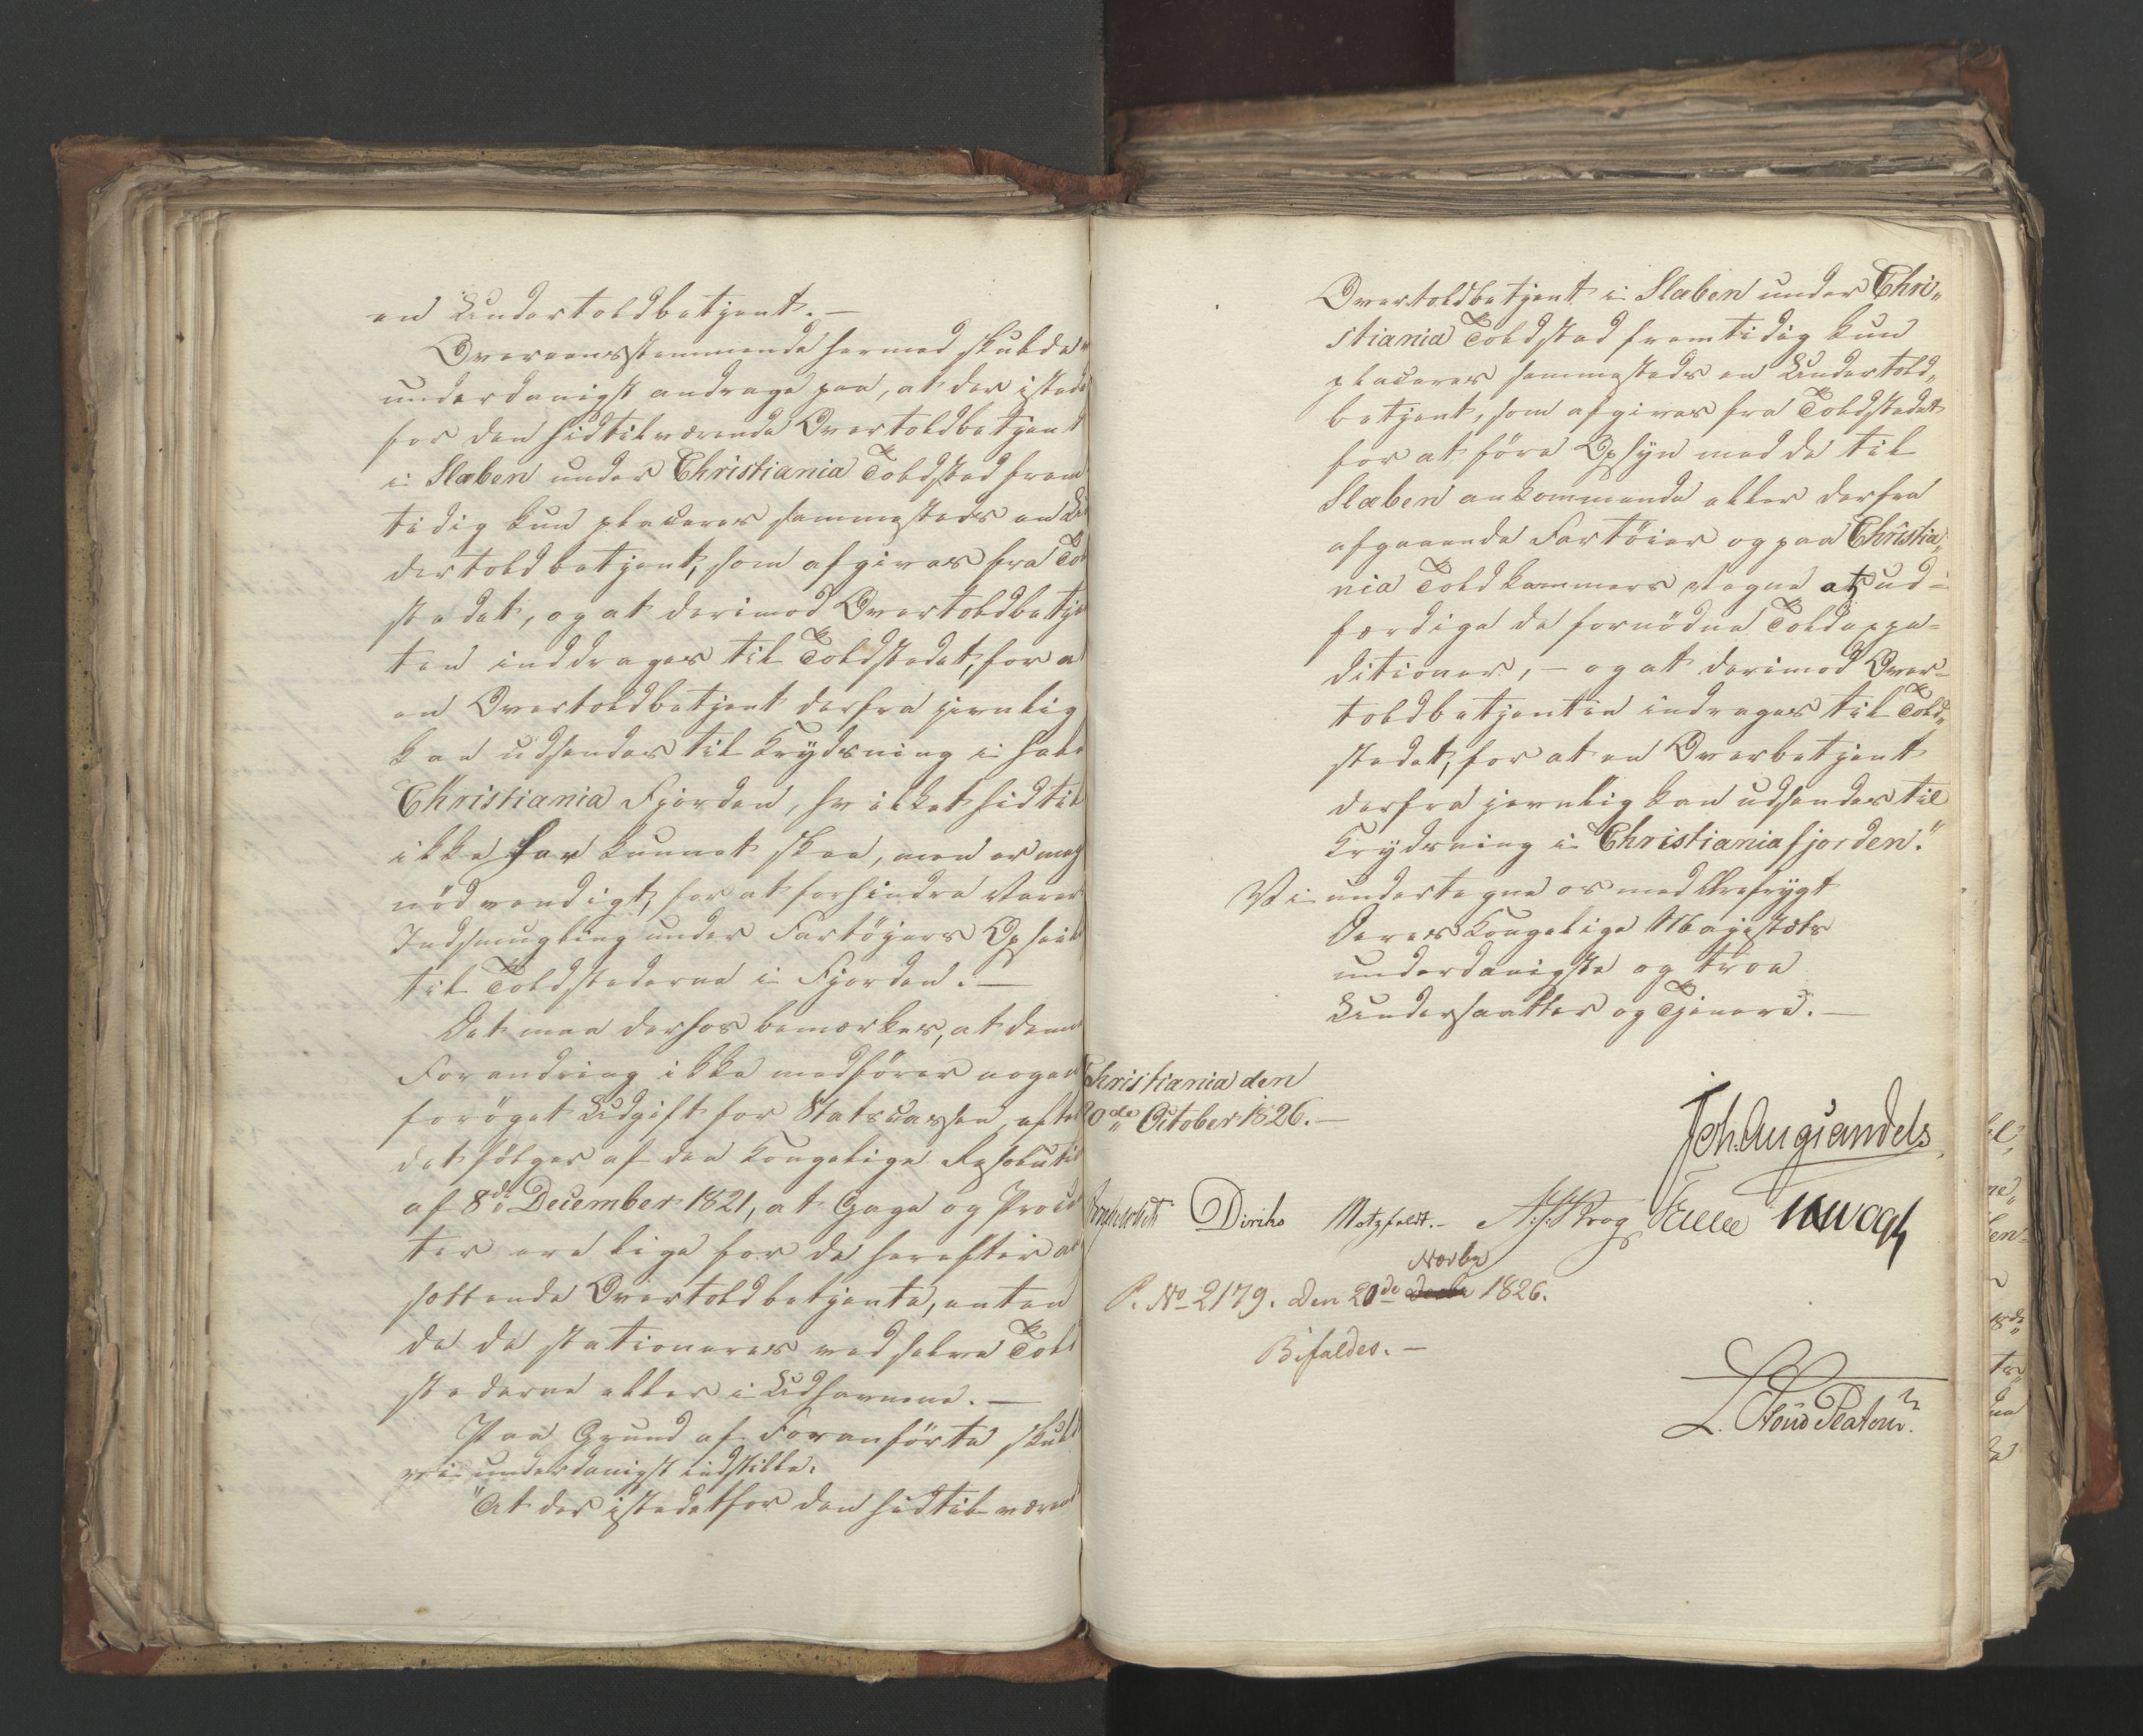 en Undertoldbetjent. —
Overeensstemmende hermed skulde
underdanigst andrage paa, at der istede
for den hidtilværende Overtoldbetjent
i Slæben under Christiania Toldsted frem
tidig kun placeres sammesteds en Un
dertoldbetjent, som afgives fra Told
stedet, og at derimod Overtoldbetje
ten inddrages til Toldstedet, for a
en Overtoldbetjent derfra jevnlig
kan udsendes til Krydsning i hele
Christiania Fjorden, hvilket hidtil
ikke har kunnet skee, men er meg
nödvendigt, for at forhindre Varers
Indsmugling under Fartöyers Opseil
til Toldstederne i Fjorden. —
Det maa derhos bemærkes, at denne
Forandring ikke medförer nogen
foröget Udgift for Statscassen, efter
det fölger af den Kongelige Resoluti
af 8de December 1821, at Gage og Proce
ter ere lige for de herefter an
sættende Overtoldbetjente, enten
de de stationeres ved selve Told
stederne eller i Udhavnene. —
Paa Grund af Foranförte skuld
vi underdanigst indstille:
"At der istedetfor den hidtil være
Overtoldbetjent i Slæben under Chri„
stiania Toldsted fremtidig kun
placeres sammesteds en Undertold„
betjent, som afgives fra Toldstedet
for at före Opsyn med de til
Slæben ankommende eller derfra
afgaaende Fartöier og paa Christia„
nia Toldkammers Vegne at ud-
færdige de fornödne Toldexpe-
ditioner, — og at derimod Over-
toldbetjenten indrages til Told„
stedet, for at en Overbetjent
derfra jevnlig kan udsendes til
Krydsning i Christianiafjorden."
Vi undertegne os med Ærefrygt
Deres Kongelige Majestæts
underdanigste og troe
Undersaatter og Tjenere. —
Christiania den
20de October 1826. —
Joh. Aug Sandels
Diriks Motzfeldt. — Krog Vogt
Novbr
P. No 2179. Den 20de 1826.
Bifaldes. —